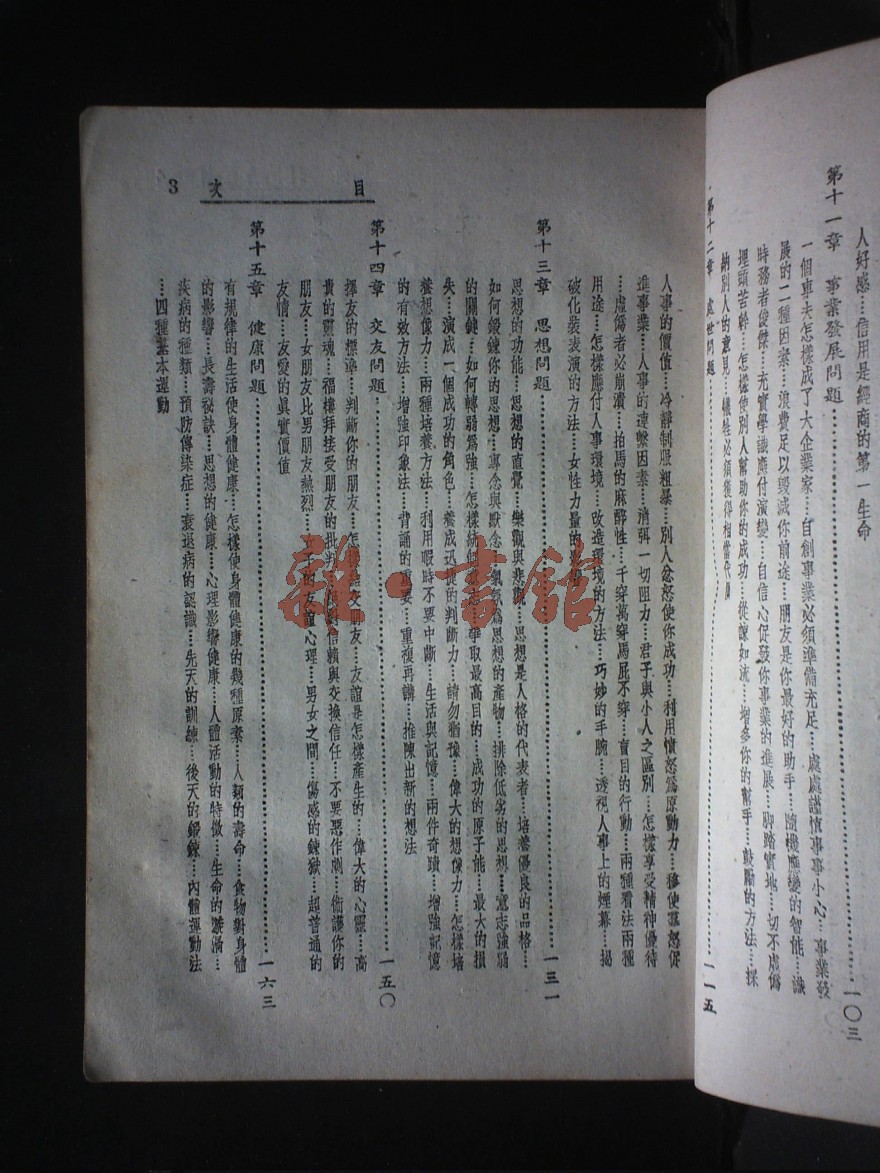 人好感……信用是經商的第一生命
第十一章　事業發展問題……一〇三
一個車夫怎樣成了大企業家……自創事業必須準備充足……處處謹慎事事小心……事業發
展的二種因素……浪費足以毀滅你前途……朋友是你最好的助手……隨機應變的智能……識
時務者俊傑……充實學識應付演變……自信心促發你事業的進展……脚踏實地……一切不虛僞
埋頭苦幹……怎樣使別人幫助你的成功……從諫如流……增多你的幫手……鼓勵的方法……採
納別人的意見……犧牲必須獲得相當代價
第十二章　處世問題……一一五
目　次　3
人事的價值……冷靜制服粗暴……別人忿怒使你成功……利用憤怒爲原動力……移使羣怒促
進事業……人事的連繫因素……消弭一切阻力……君子與小人之區別……怎樣享受精神優待
……虛僞者必崩潰……拍馬的麻醉性……千穿萬穿馬屁不穿……盲目的行動……兩種看法兩種
用途……怎樣應付人事環境……改造環境的方法……巧妙的手腕……透視人事上的煙幕……揭
破化裝表演的方法……女性力量的
第十三章　思想問題……一三一
思想的功能……思想的直覺……樂觀與悲觀……思想是人格的代表者……培養優良的品格……
如何鍛鍊你的思想……專念與默念……氣氛爲思想的產物……排除低劣的思想……意志強弱
的關鍵……如何轉弱爲強……怎樣……爭取最高目的……成功的原子能……最大的損
失……演成一個成功的角色……養成迅捷的判斷力……請勿猶豫……偉大的想像力……怎樣培
養想像力……兩種培養方法……利用暇時不要中斷……生活與記憶……兩件奇蹟……增強記憶
的有效方法……增強印象法……背誦的重要……重複再講……推陳出新的想法
第十四章　交友問題……一五〇
擇友的標準……判斷你的朋友……怎樣結交朋友……友誼是怎樣產生的……偉大的心靈……高
貴的靈魂……福樓拜接受朋友的批判……信賴與交換信任……不要惡作劇……衛護你的
朋友……女朋友比男朋友熱烈……子的友誼心理……男女之間……傷感的鍊獄……超普通的
友情……友愛的眞實價值
第十五章　健康問題……一六三
有規律的生活使身體健康……怎樣使身體健康的幾種原素……人類的壽命……食物對身體
的影響……長壽祕訣……思想的健康……心理影響健康……人體活動的特徵……生命的漩渦……
疾病的種類……預防傳染症……衰退病的認識……先天的訓練……後天的鍛鍊……內體運動法
……四種基本運動